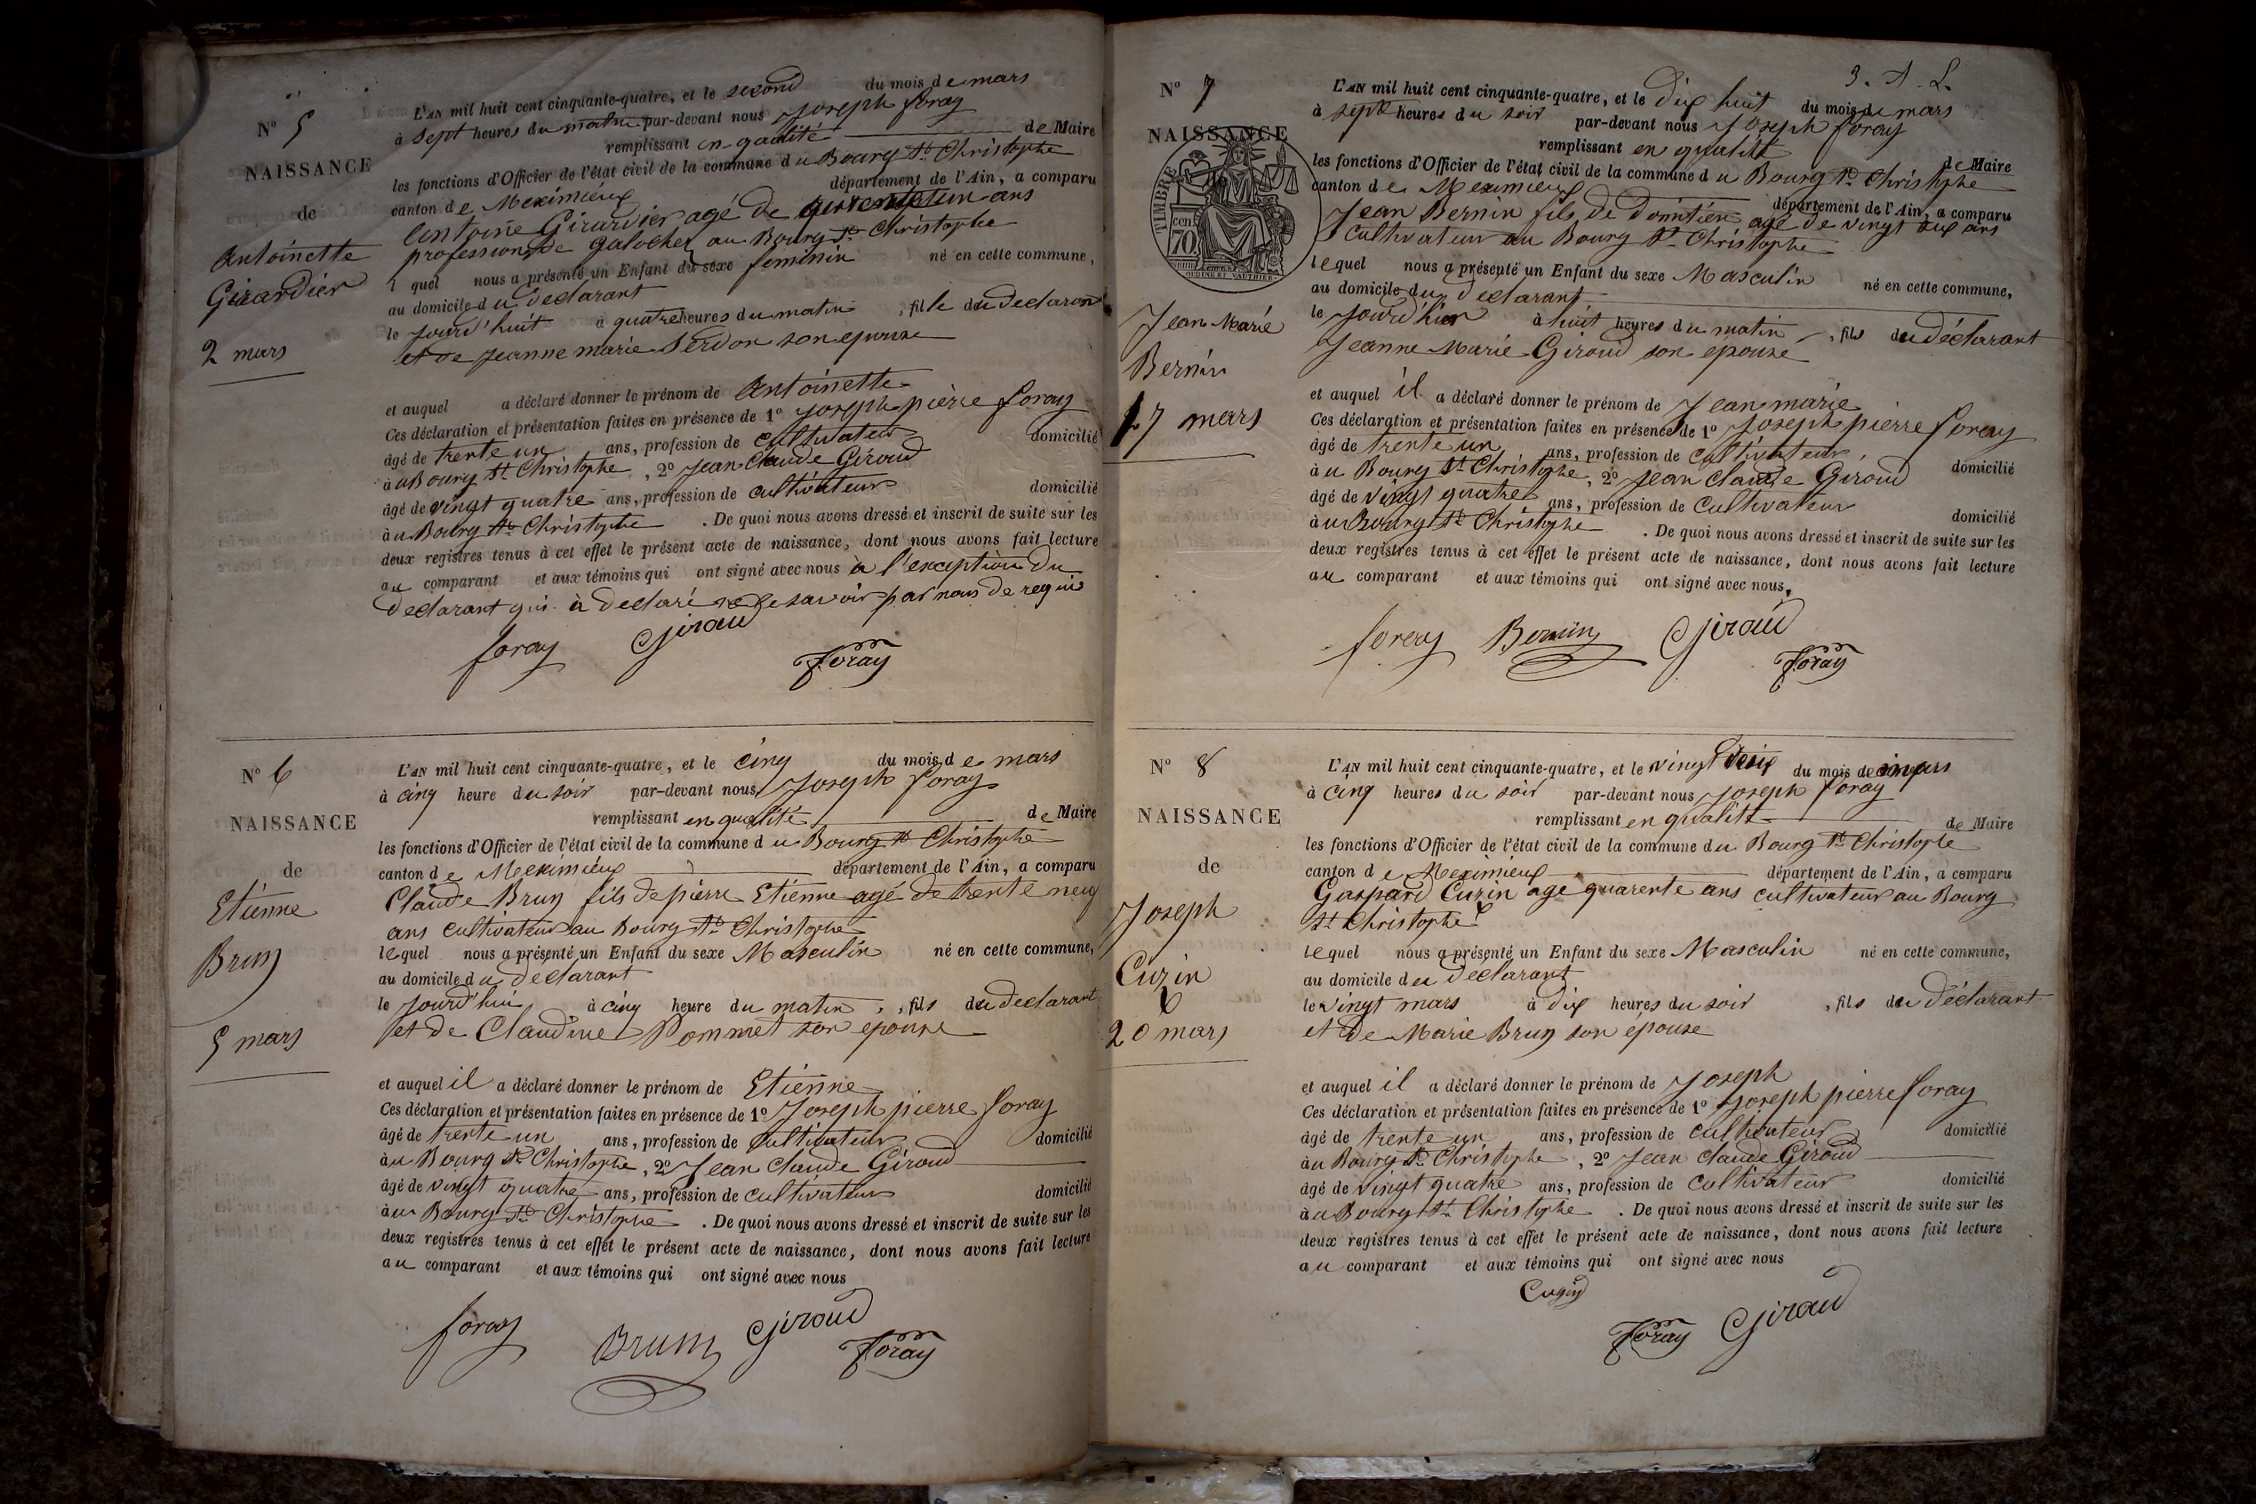 Nº 5
NAISSANCE
de
Antoinette
Girardier
2 mars
L'AN mil huit cent cinquante-quatre, et le second du mois de mars
à sept heures du matin par-devant nous Joseph foray
remplissant en qualité de Maire
les fonctions d'Officier de l'état civil de la commune du Bourg St Christophe
canton de Meximieux département de l'Ain, a comparu
Antoine Girardier agé de ans
profession de galocher au Bourg St Christophe
l quel nous a présenté un Enfant du sexe feminin né en cette commune,
au domicile du declarant
le jourd'huit à quatre heures du matin , fille du declarant
et de Jeanne marie Serdon son epouse
et auquel a déclaré donner le prénom de Antoinette
Ces déclaration et présentation faites en présence de 1º Joseph pierre foray
âgé de trente un ans, profession de cultivateur domicilié
à u Bourg St Christophe , 2º Jean Claude Giroud
âgé de vingt quatre ans, profession de cultivateur domicilié
à u Bourg St Christophe . De quoi nous avons dressé et inscrit de suite sur les
deux registres tenus à cet effet le présent acte de naissance, dont nous avons fait lecture
au comparant et aux témoins qui ont signé avec nous à l'exception du
declarant qui à declaré ne le savoir par nous de requis
foray Giroud
Foray
Nº 6
NAISSANCE
de
Etienne
Brun
5 mars
L'AN mil huit cent cinquante-quatre, et le cinq du mois de mars
à cinq heure du soir par-devant nous Joseph foray
remplissant en qualité de Maire
les fonctions d'Officier de l'état civil de la commune du Bourg St Christophe
canton de Meximieux département de l'Ain, a comparu
Claude Brun fils de pierre Etienne agé de trente neuf
ans cultivateur au Bourg St Christophe
lequel nous a présenté un Enfant du sexe Masculin né en cette commune,
au domicile du declarant
le jourd'hui à cinq heure du matin , fils du declarant
et de Claudine Pommet son epouse
et auquel il a déclaré donner le prénom de Etienne
Ces déclaration et présentation faites en présence de 1º Joseph pierre foray
âgé de trente un ans, profession de cultivateur domicilié
à u Bourg St Christophe , 2º Jean claude Giroud
âgé de vingt quatre ans, profession de cultivateur domicilié
à u Bourg St Christophe . De quoi nous avons dressé et inscrit de suite sur les
deux registres tenus à cet effet le présent acte de naissance, dont nous avons fait lecture
au comparant et aux témoins qui ont signé avec nous
foray Brun Giroud
Foray
3. A. L.
Nº 7
NAISSANCE
TIMBRE
CEN
70
Jean Marie
Bernin
17 mars
L'AN mil huit cent cinquante-quatre, et le dix huit du mois de mars
à sept heures du soir par-devant nous Joseph foray
remplissant en qualité de Maire
les fonctions d'Officier de l'état civil de la commune du Bourg St Christophe
canton de Meximieux département de l'Ain, a comparu
Jean Bernin fils de domitien agé de vingt six ans
cultivateur au Bourg St Christophe
lequel nous a présenté un Enfant du sexe Masculin né en cette commune,
au domicile du declarant
le jourd'hier à huit heures du matin , fils du déclarant
Jeanne Marie Giroud son épouse
et auquel il a déclaré donner le prénom de Jean marie
Ces déclaration et présentation faites en présence de 1º Joseph pierre foray
âgé de trente un ans, profession de cultivateur
à u Bourg St Christophe , 2º Jean claude Giroud domicilié
âgé de vingt quatre ans, profession de cultivateur
à u Bourg St Christophe domicilié
. De quoi nous avons dressé et inscrit de suite sur les
deux registres tenus à cet effet le présent acte de naissance, dont nous avons fait lecture
au comparant et aux témoins qui ont signé avec nous.
foray Bernin Giroud
Foray
Nº 8
NAISSANCE
de
Joseph
Cuzin
20 mars
L'AN mil huit cent cinquante-quatre, et le vingt du mois de mars
à cinq heures du soir par-devant nous Joseph foray
remplissant en qualité de Maire
les fonctions d'Officier de l'état civil de la commune du Bourg St Christophe
canton de Meximieux département de l'Ain, a comparu
Gaspard Cuzin age quarente ans cultivateur au Bourg
St Christophe
lequel nous a présenté un Enfant du sexe Masculin né en cette commune,
au domicile du declarant
le vingt mars à dix heures du soir , fils du déclarant
et de Marie Brun son épouse
et auquel il a déclaré donner le prénom de Joseph
Ces déclaration et présentation faites en présence de 1º Joseph pierre foray
âgé de trente un ans, profession de cultivateur domicilié
à u Bourg St Christophe , 2º Jean claude Giroud
âgé de vingt quatre ans, profession de cultivateur domicilié
à u Bourg St Christophe . De quoi nous avons dressé et inscrit de suite sur les
deux registres tenus à cet effet le présent acte de naissance, dont nous avons fait lecture
au comparant et aux témoins qui ont signé avec nous
Cuzin
Foray Giroud